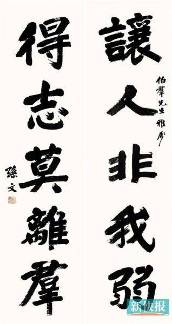 讓人非我弱
伯群先生雅屬
得志莫離羣
孫文
新快报